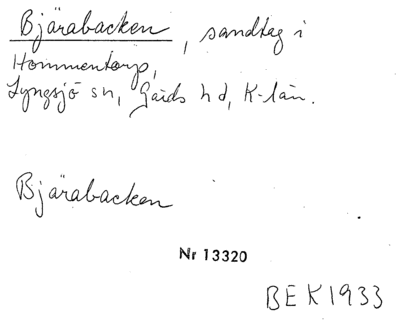 Bjärabacken, sandtag i
Hommentorp,
Lyngsjö sn, Gärds hd, K-län.
Bjärabacken
Nr 13320
BEK 1933